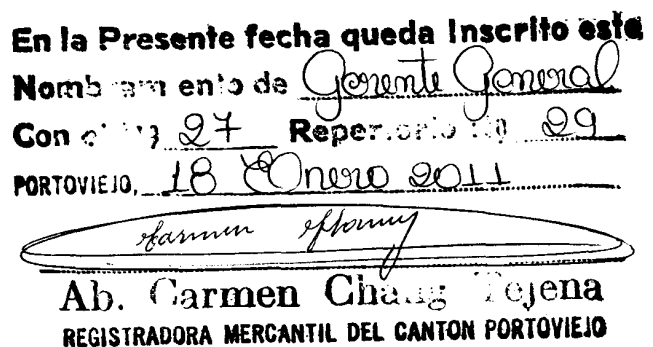 En la Presente fecha queda Inscrito este
Nombramiento de Gerente General
Con el Nº 27 Repertorio Nº 29
PORTOVIEJO, 18 Enero 2011
Carmen Chang
Ab. Carmen Chang Tejena
REGISTRADORA MERCANTIL DEL CANTON PORTOVIEJO